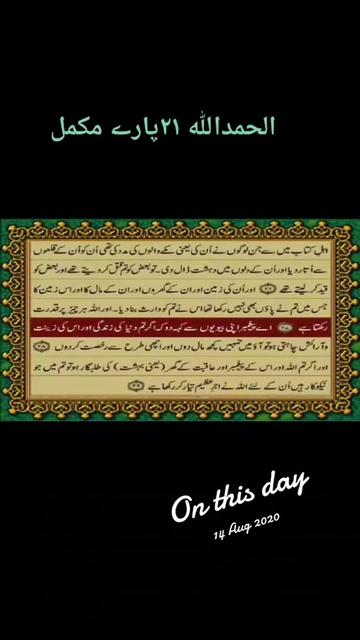 الحمداللہ ۲۱پارے مکمل
اہل کتاب میں سے جن لوگوں نے اُن کی یعنی مکے والوں کی مدد کی تھی اُن کو اُن کے قلعوں
سے اُتار دیا اور اُن کے دلوں میں دہشت ڈال دی۔ تو بعض کو تم قتل کر دیتے تھے اور بعض کو
قید کر لیتے تھے ﴿۲۶﴾ اور اُن کی زمین اور ان کے گھروں اور ان کے مال کا اور اس زمین کا
جس میں تم نے پاؤں بھی نہیں رکھا تھا اس نے تم کو وارث بنا دیا۔ اور اللہ ہر چیز پر قدرت
رکھتا ہے ﴿۲۷﴾ اے پیغمبر اپنی بیویوں سے کہہ دو کہ اگر تم دنیا کی زندگی اور اس کی زینت
و آرائش چاہتی ہو تو آؤ میں تمہیں کچھ مال دوں اور اچھی طرح سے رخصت کر دوں ﴿۲۸﴾
اور اگر تم اللہ اور اس کے پیغمبر اور عاقبت کے گھر (یعنی بہشت) کی طلبگار ہو تو تم میں جو
نیکوکار ہیں اُن کے لئے اللہ نے اجر عظیم تیار کر رکھا ہے ﴿۲۹﴾
On this day
14 Aug 2020